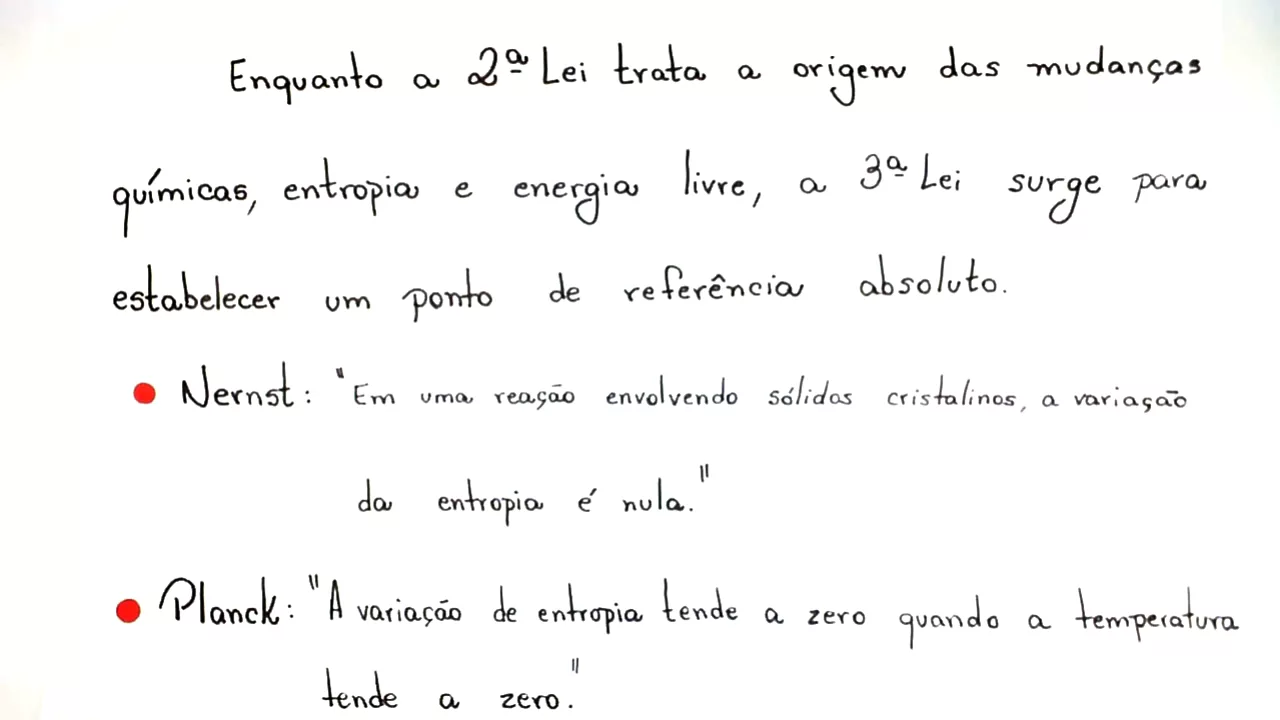 Enquanto a 2ª Lei trata a origem das mudanças
químicas, entropia e energia livre, a 3ª Lei surge para
estabelecer um ponto de referência absoluto.
• Nernst: "Em uma reação envolvendo sólidos cristalinos, a variação
da entropia é nula."
• Planck: "A variação de entropia tende a zero quando a temperatura
tende a zero."